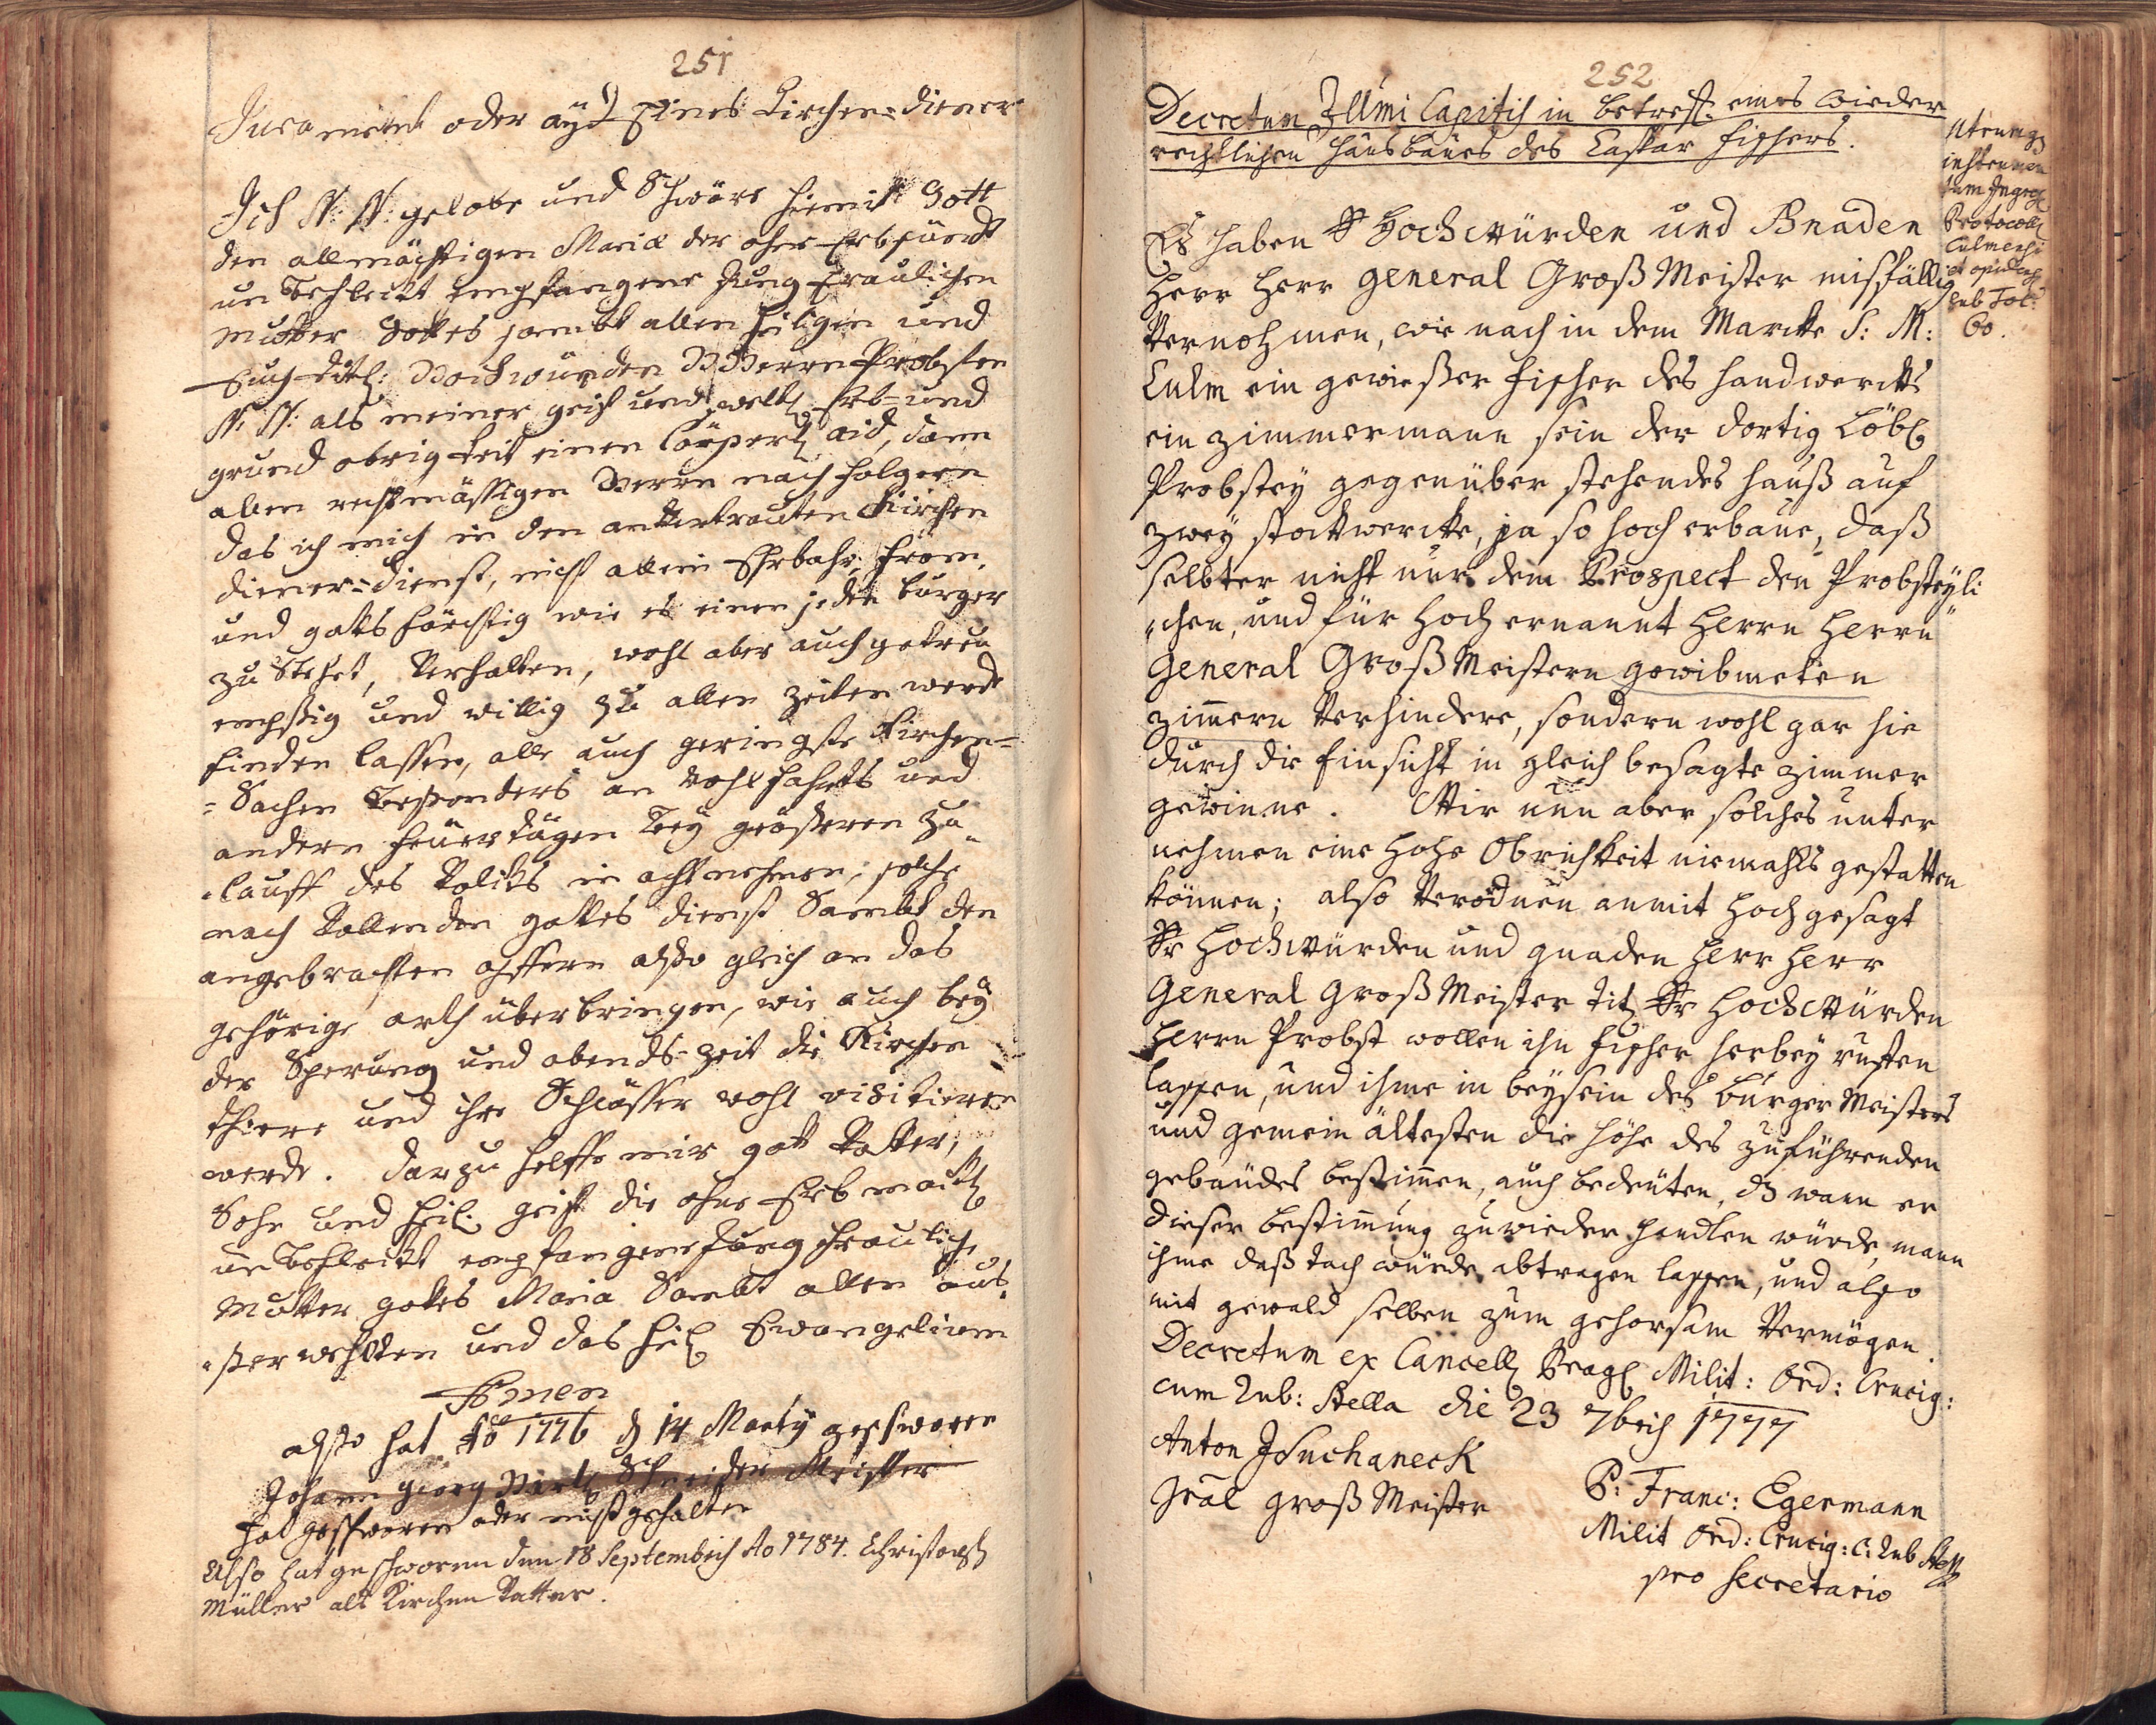 251
Jurament oder ayd Eines Kirchen=diener
Ich N: N: gelobe und Schwöre hiemit Gott
den allmächtigen Mariæ der ohne Erbsündt
un Befleckt Empfangene Jung Fraulichen
Mutter Gottes sambt allen heiligen und
Euch titl: Hochwürden H Herrn Probsten
N: N: als meiner geist und weltl Erb= und
grund obrigkeit einen Cörperl aid, dann
allen rechtmässigen Herrn nach folgern
das ich mich in den anVertrauten Kirchen
diener=dienst, nicht allein Ehrbahr, From,
und gotts förchtig wie es einen jeden burger
zu Stehet, Verhalten, wohl aber auch getreu
empsig und willig zu allen zeiten werde
finden lassen, alle auch geringste Kirchen=
=Sachen Besonders an Wohlfahrts und
andern Feuertägen Bey grösseren Zu=
=lauff des Volcks in acht nehmen, solche
nach Vollenden gottes dienst Sambt den
angebrachten opffern also gleich an das
gehörige orth überbringen, wie auch bey
der Sperung und abends=zeit die Kirchen
thüre und ihre Schlösser wohl visitieren
werde. darzu helffe mir gott Vatter,
Sohn und heil. geist die ohne Erb mackl
un Befleckt empfangene Jung frauliche
Mutter gottes Maria Sambt allen aus=
=ser wehlten und das heil Evangelium
Amen
also hat Ao 1776 d 14 Marty geschworen
Johann georg Schneider Meister
hat geschworen aber nicht gehalten
Also hat geschworen den 18 Septembris Ao 1784. Christoph
Müller als Kirchen Vatter.
252
Decretum Illmi Capitis in betreff: eines wieder
rechtlichen hausbaues des Caspar Fischers.
Utrumq
instrumen
tum Ingros
Protocoll
Culmensi
et opidens
sub Fol:
60.
Es haben Sr Hochwürden und Gnaden
Herr Herr General Groß Meister misfällig
Vernohmen, wie nach in dem Marckte S: M:
Culm ein gewießer Fischer des handwercks
ein zimmermann sein der dortig Löbl
Probstey gegenüber stehendes hauß auf
zwey stockwercke, ja so hoch erbaue, daß
selbter nicht nur dem Prospect den Probsteyli
"chen, und für Hoch ernannt Herrn Herrn
General Groß Meistern gewibmeten
zimern Verhindere, sondern wohl gar hie
durch die Einsicht in gleich besagte zimmer
gewinne. Wie nun aber solches unter
nehmen eine hohe Obrichkeit niemahls gestatten
können; also Verordnen anmit Hoch gesagt
Sr Hochwürden und gnaden Herr Herr
General Groß Meister Titl Sr Hochwürden
Herrn Probst wollen ihn Fischer herbey ruffen
lassen, und ihme in beysein des Bürger Meisters
und gemein ältesten die höhe des zuführenden
gebäudes bestimen, auch bedeuten, dz wann er
dieser bestimung zuwieder handlen würde, mann
ihme daß Dach würde abtragen lassen, und also
mit gewald selben zum gehorsam Vermögen.
Decretum ex Cancell Prag Milit: Ord: Crucig:
cum Rub: Stella die 23 7bris 1777
Anton J Suchaneck
Gral Groß Meister
P: Franc: Egermann
Milit Ord: Crucig: C: Rub Stell
pro Secretario